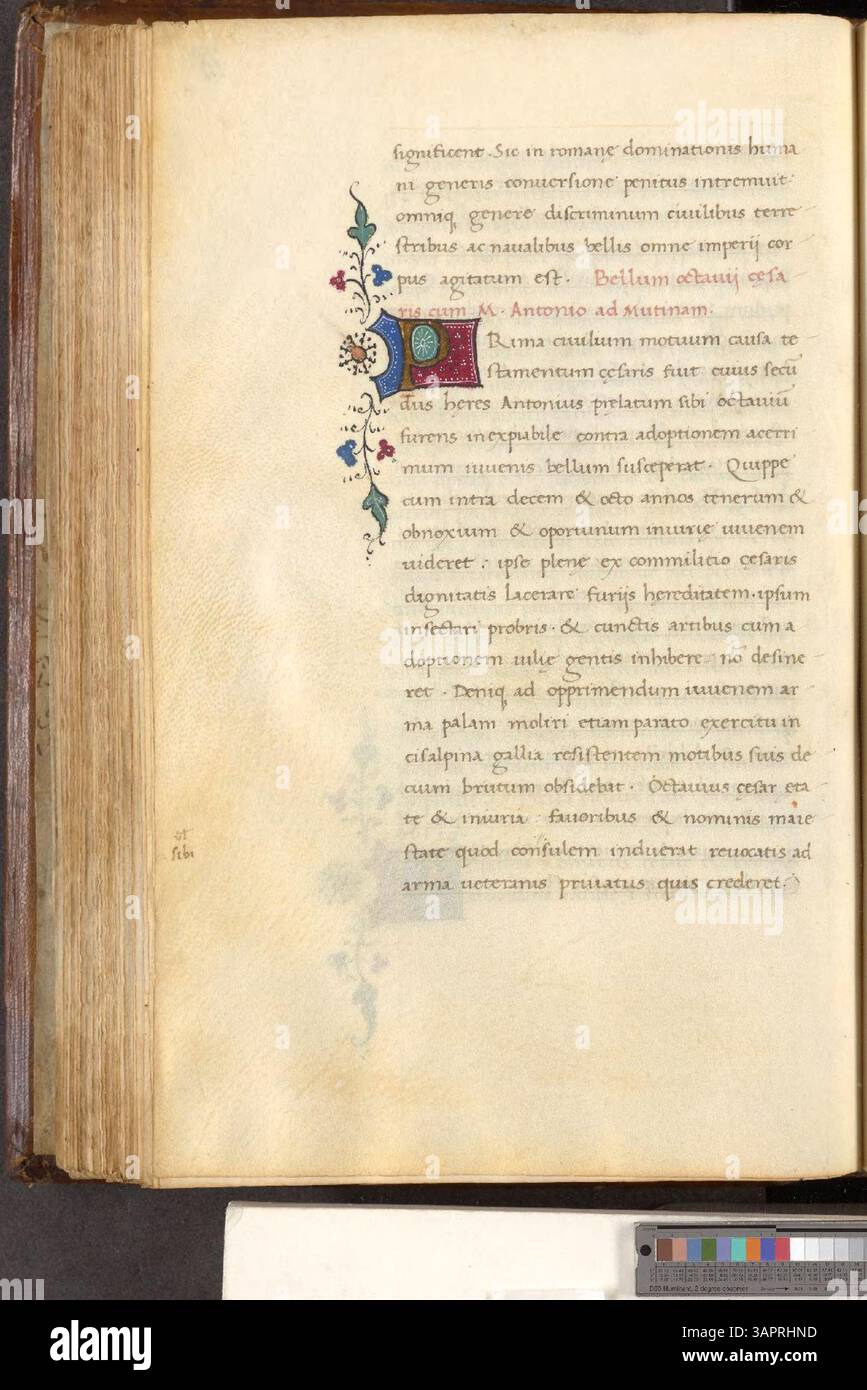 significent. Sic in romanę dominationis huma
ni generis conuersione penitus intremuit.
omniq; genere discriminum ciuilibus terre
stribus ac naualibus bellis omne imperij cor
pus agitatum est. Bellum octauij cęsa
ris cum M. Antonio ad Mutinam.
PRima ciuilium motuum causa te
stamentum cęsaris fuit cuius secū
dus heres Antonius prelatum sibi octauiū
furens inexpiabile contra adoptionem acerri
mum iuuenis bellum susceperat. Quippe
cum intra decem & octo annos tenerum &
obnoxium & oportunum iniurię iuuenem
uideret: ipse plenę ex commilitio cęsaris
dignitatis lacerare furijs hereditatem. ipsum
insectari probris. & cunctis artibus cum a
doptionem iulię gentis inhibere nō desine
ret. Deniq; ad opprimendum iuuenem ar
ma palam moliri etiam parato exercitu in
cisalpina gallia resistentem motibus suis de
cium brutum obsidebat. Octauius cęsar eta
te & iniuria fauoribus & nominis maie
ūl
sibi
state quod consulem induerat reuocatis ad
arma ueteranis priuatus quis crederet.
alamy
Image ID: 3APRHND
www.alamy.com